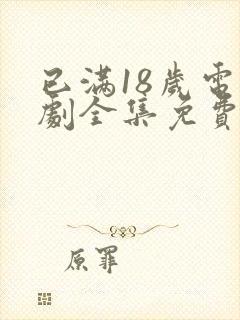 已满18歲電
劇全集免費
原罪